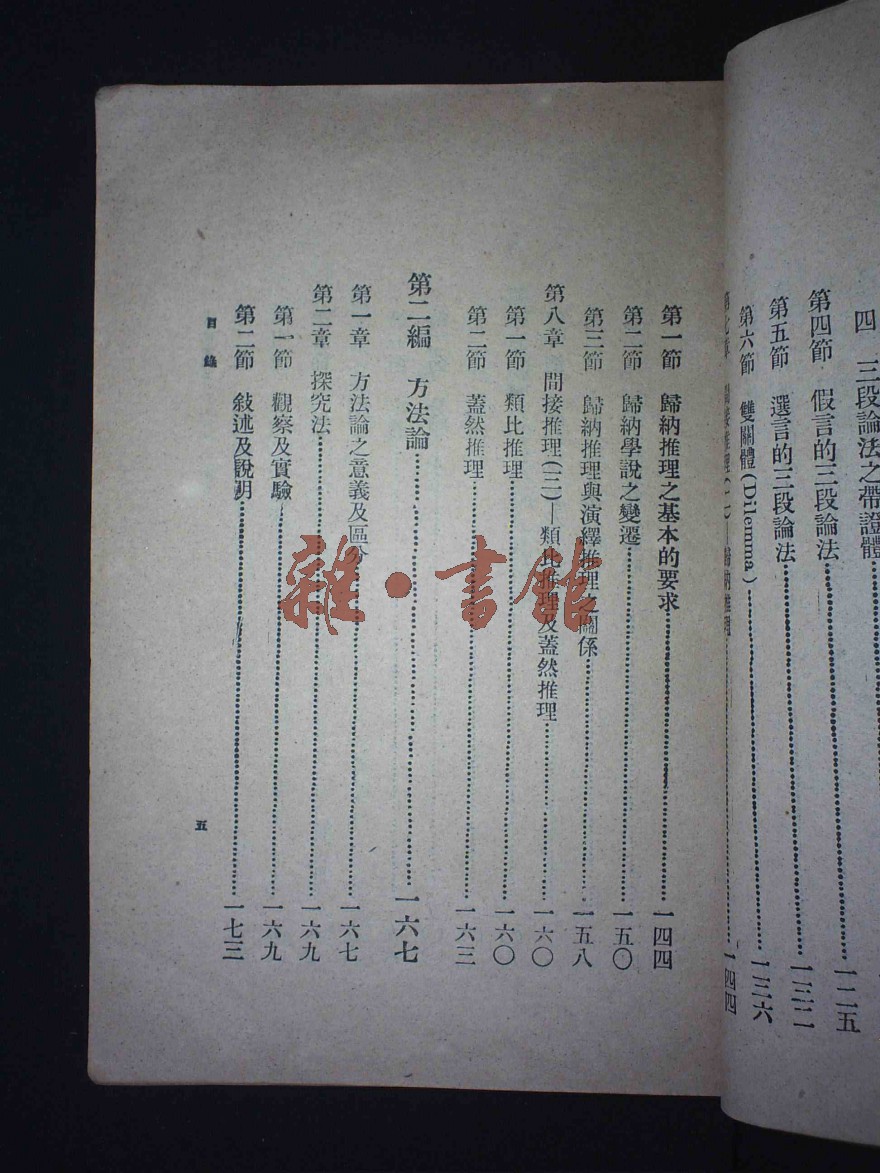 四 三段論法之帶證體
第四節 假言的三段論法……一二五
第五節 選言的三段論法……一三二
第六節 雙關體(Dilemma)……一三六
第七章 間接推理(二)—歸納推理……一四四
第一節 歸納推理之基本的要求……一四四
第二節 歸納學說之變遷……一五〇
第三節 歸納推理與演繹推理之關係……一五八
第八章 間接推理(三)—類比推理及蓋然推理……一六〇
第一節 類比推理……一六〇
第二節 蓋然推理……一六三
第二編 方法論……一六七
第一章 方法論之意義及區分……一六七
第二章 探究法……一六九
第一節 觀察及實驗……一六九
第二節 敍述及說明……一七三
目錄
五
雜·書館